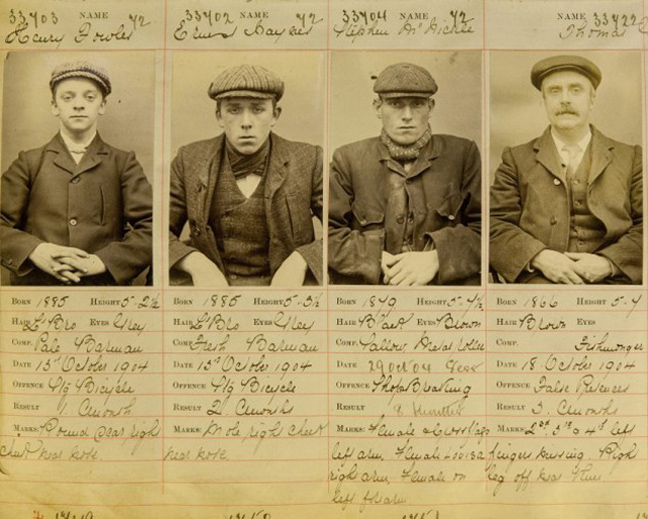 33703 NAME 72
Henry Fowler
33702 NAME 72
Haynes
33704 NAME 72
Stephen McHickie
NAME 33722
Thomas
BORN 1885 HEIGHT 5-2½
HAIR L Bro EYES Grey
COMP. Pale Barman
DATE 15th October 1904
OFFENCE Bicycle
RESULT 1 Month
MARKS: Round scar right
cheek near nose
BORN 1885 HEIGHT 5-3½
HAIR L Bro EYES Grey
COMP. Fresh Barman
DATE 15th October 1904
OFFENCE Bicycle
RESULT 2 Months
MARKS: Mole right cheek
near nose
BORN HEIGHT 5-4½
HAIR EYES Brown
COMP. Sallow
DATE 29 Oct 04
OFFENCE Shop Breaking
RESULT 8 Months
MARKS: Female
left arm. Female Louisa
right arm, Female on
left forearm
BORN 1866 HEIGHT 5-4
HAIR Brown EYES
COMP. Fishmonger
DATE 18 October 1904
OFFENCE False Pretences
RESULT 3 Months
MARKS: 2nd 3rd & 4th left
fingers missing. Right
leg off near